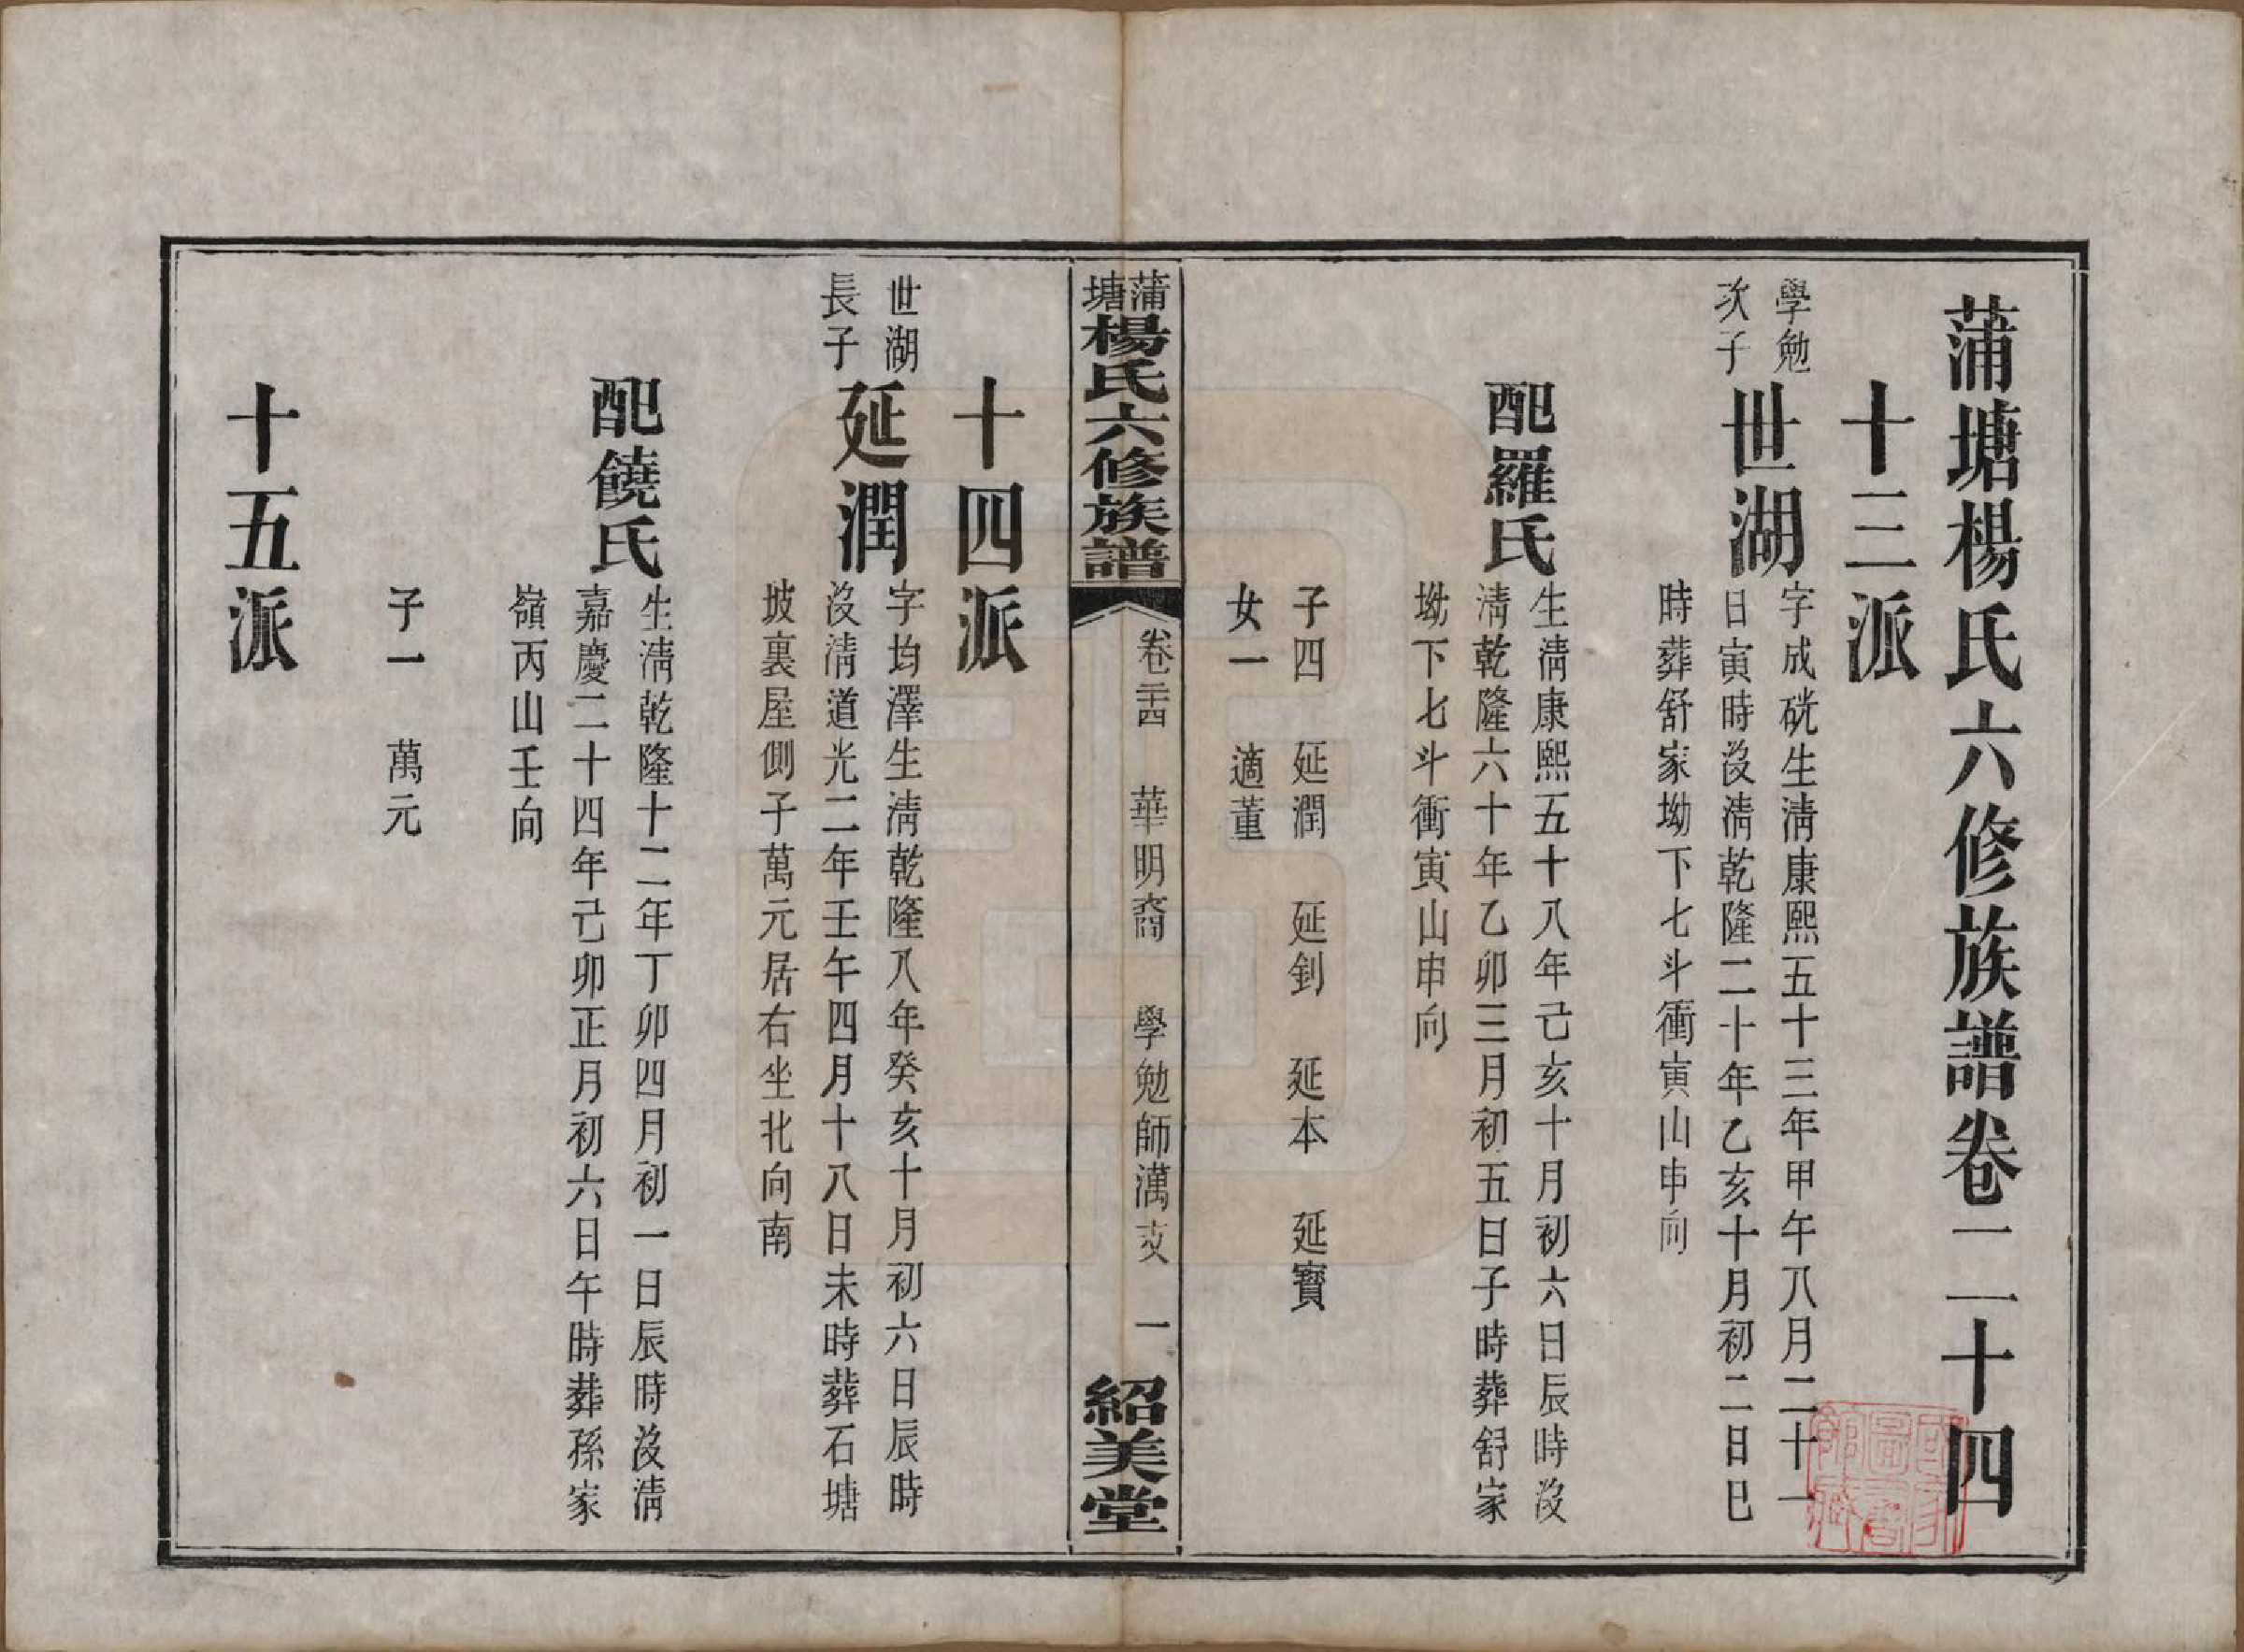 蒲塘楊氏六修族譜卷二十四
十三派
學勉
次子
世湖
字成硄生淸康熙五十三年甲午八月二十一
日寅時沒淸乾隆二十年乙亥十月初二日巳
時葬舒家坳下七斗衝寅山申向
配羅氏
生淸康熙五十八年己亥十月初六日辰時沒
淸乾隆六十年乙卯三月初五日子時葬舒家
坳下七斗衝寅山申向
子四 延潤 延釗 延本 延寶
女一 適董
蒲塘楊氏六修族譜 卷二十四 華明裔 學勉師濿支 一 紹美堂
十四派
世湖
長子
延潤
字均澤生淸乾隆八年癸亥十月初六日辰時
沒淸道光二年壬午四月十八日未時葬石塘
坡裏屋側子萬元居右坐北向南
配饒氏
生淸乾隆十二年丁卯四月初一日辰時沒淸
嘉慶二十四年己卯正月初六日午時葬孫家
嶺丙山壬向
子一 萬元
十五派
國家圖書館藏